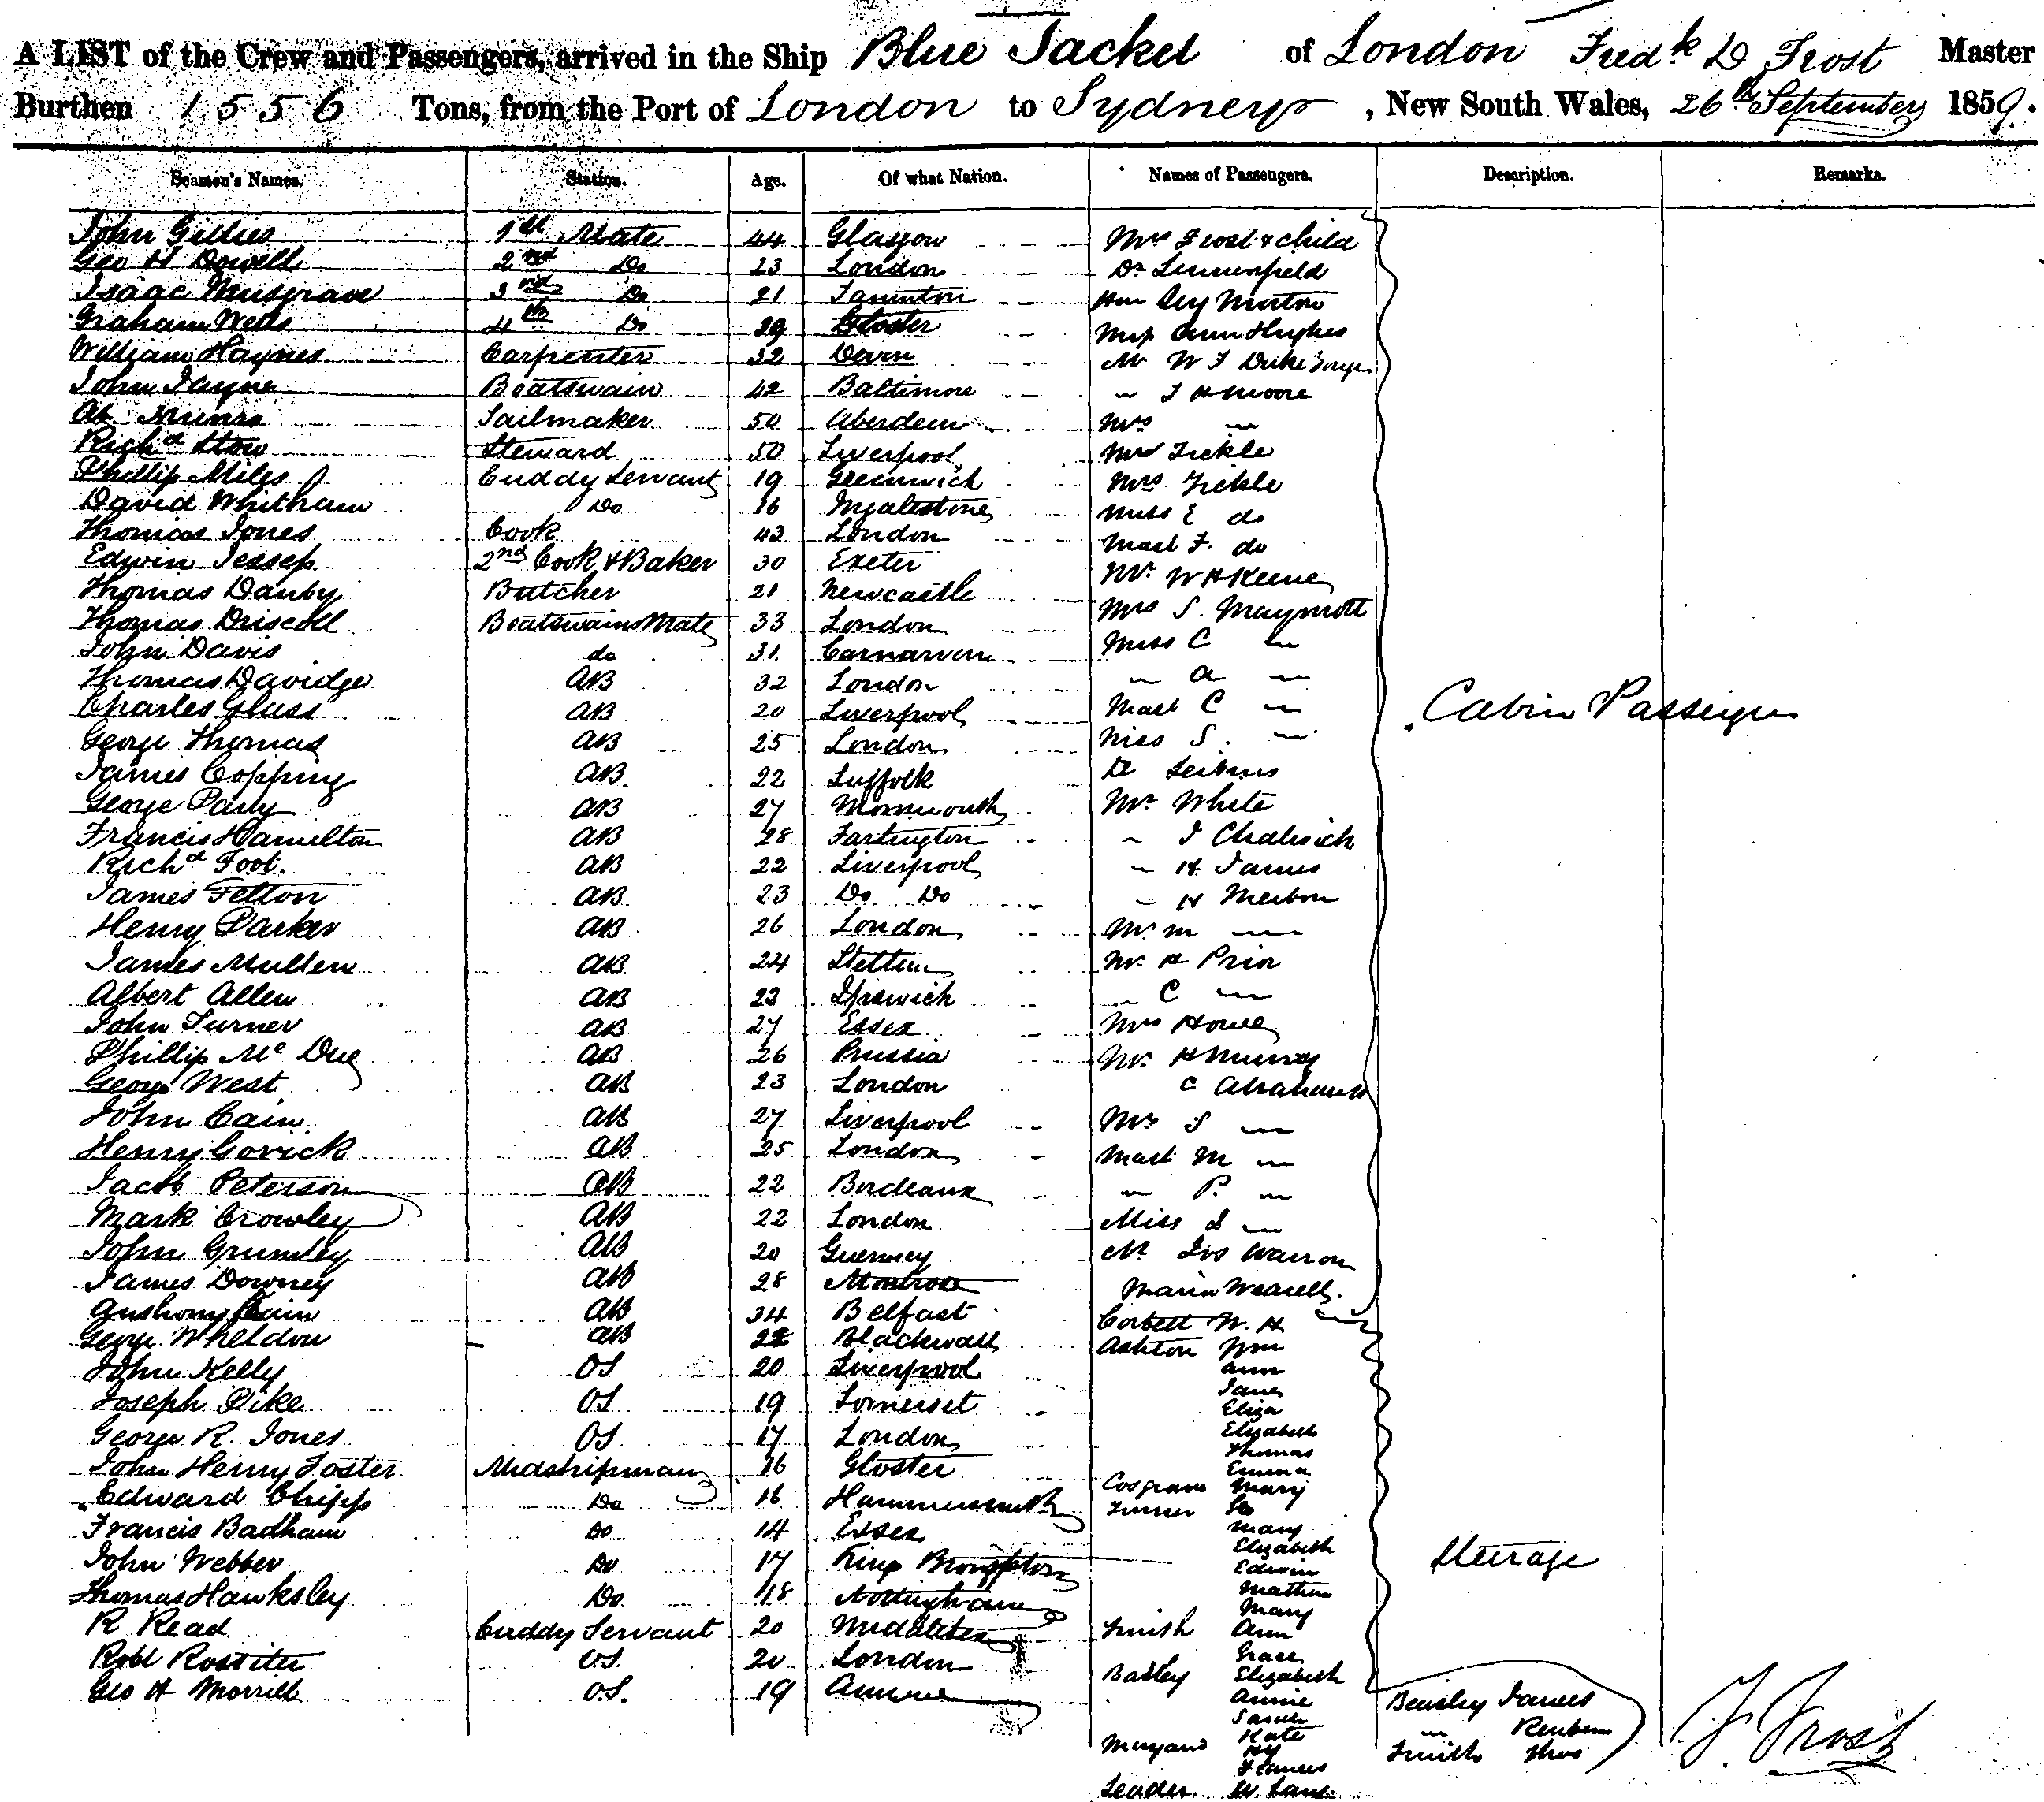 A LIST of the Crew and Passengers, arrived in the Ship Blue Jacket of London Fredk D Frost Master
Burthen 1556 Tons, from the Port of London to Sydney, New South Wales, 26th September 1859.
Seamen's Names. Station. Age. Of what Nation. Names of Passengers. Description. Remarks.
John Gillies 1st Mate 44 Glasgow Mrs Frost & child
Geo H Dowell 2nd Do 23 London Dr
Isaac Musgrave 3rd Do 21 Taunton Morton
Graham Wells 4th Do 29 Gloster Miss Ann Hughes
William Haynes Carpenter 32 Mr W F Duke
John Payne Boatswain 42 Baltimore " F H Moore
Munro Sailmaker 50 Aberdeen Mrs "
Richd Stow Steward 50 Liverpool Tickle
Phillip Miles Cuddy Servant 19 Greenwich Mrs Tickle
David Whitham Do 16 Ingatestone Miss E do
Thomas Jones Cook 43 London Mast F. do
Edwin Jessep 2nd Cook & Baker 30 Exeter Mr W H Keene
Thomas Danby Butcher 21 Newcastle Mrs S. Maymott
Thomas Driscoll Boatswains Mate 33 London Miss C "
John Davis do 31 Carnarvon " A "
Thomas Davidge AB 32 London Mast C "
Charles Glass AB 20 Liverpool Miss S. " Cabin Passengers
George Thomas AB 25 London Dr
James Copping AB 22 Suffolk Mr White
George Parly AB 27 Monmouth " J
Francis Hamilton AB 28 " H. James
Richd Foot. AB 22 Liverpool " H
James Felton AB 23 Do Do
Henry Parker AB 26 London Mr M "
James Mullen AB 24 Stettin Mr H Prior
Albert Allen AB 23 Ipswich " C "
John Turner AB 27 Essex Mrs Howe
Phillip Mc Due AB 26 Prussia Mr H Murray
George West AB 23 London C Abrahams
John Cain AB 27 Liverpool Mrs S "
Henry Gorick AB 25 London Mast M "
Jacob Peterson AB 22 Bordeaux " P. "
Mark Crowley AB 22 London Miss S "
John Grumley AB 20 Guernsey Mr Jos Warron
James Downey AB 28 Montrose Maria
Anthony AB 34 Belfast Corbett W. H
George Wheldon AB 22 Blackwall Ashton Wm
Ann
John Kelly OS 20 Liverpool Jane
Joseph Pike OS 19 Somerset Eliza
Elizabeth
George R. Jones OS 17 London Thomas
John Henry Foster Midshipman 16 Gloster Emma
Cosgrave Mary
Edward Chipp Do 16 Hammersmith Turner Geo
Francis Badham Do 14 Essex Mary
Elizabeth
John Webber Do 17 King Brompton Edwin Steerage
Thomas Hawksley Do 18 Nottingham Mathew
Mary
R Read Cuddy Servant 20 Middlesex Smith Ann
Robt Rossiter O.S. 20 London Grace
Basley Elizabeth
Geo H Morrell O.S. 19 Annie Beasley James
Sarah " Reuben
Kate Smith Thos
Hy
Frances
Leader W
F. Frost